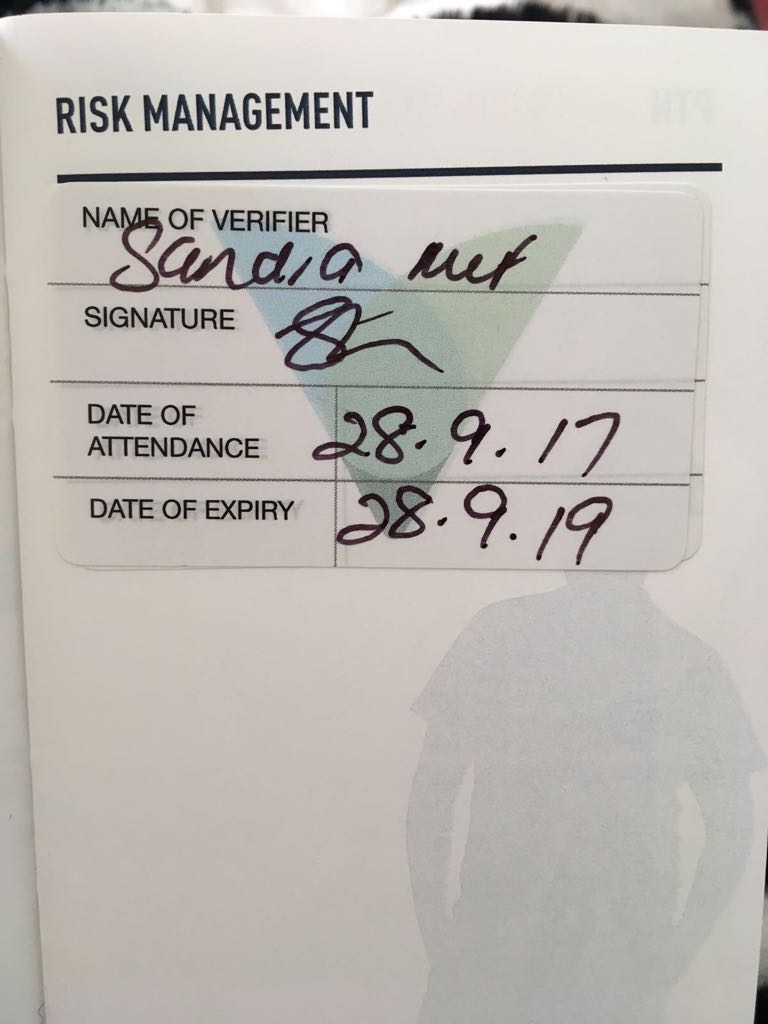 RISK MANAGEMENT
NAME OF VERIFIER
Sandra
SIGNATURE
DATE OF
ATTENDANCE 28.9.17
DATE OF EXPIRY 28.9.19